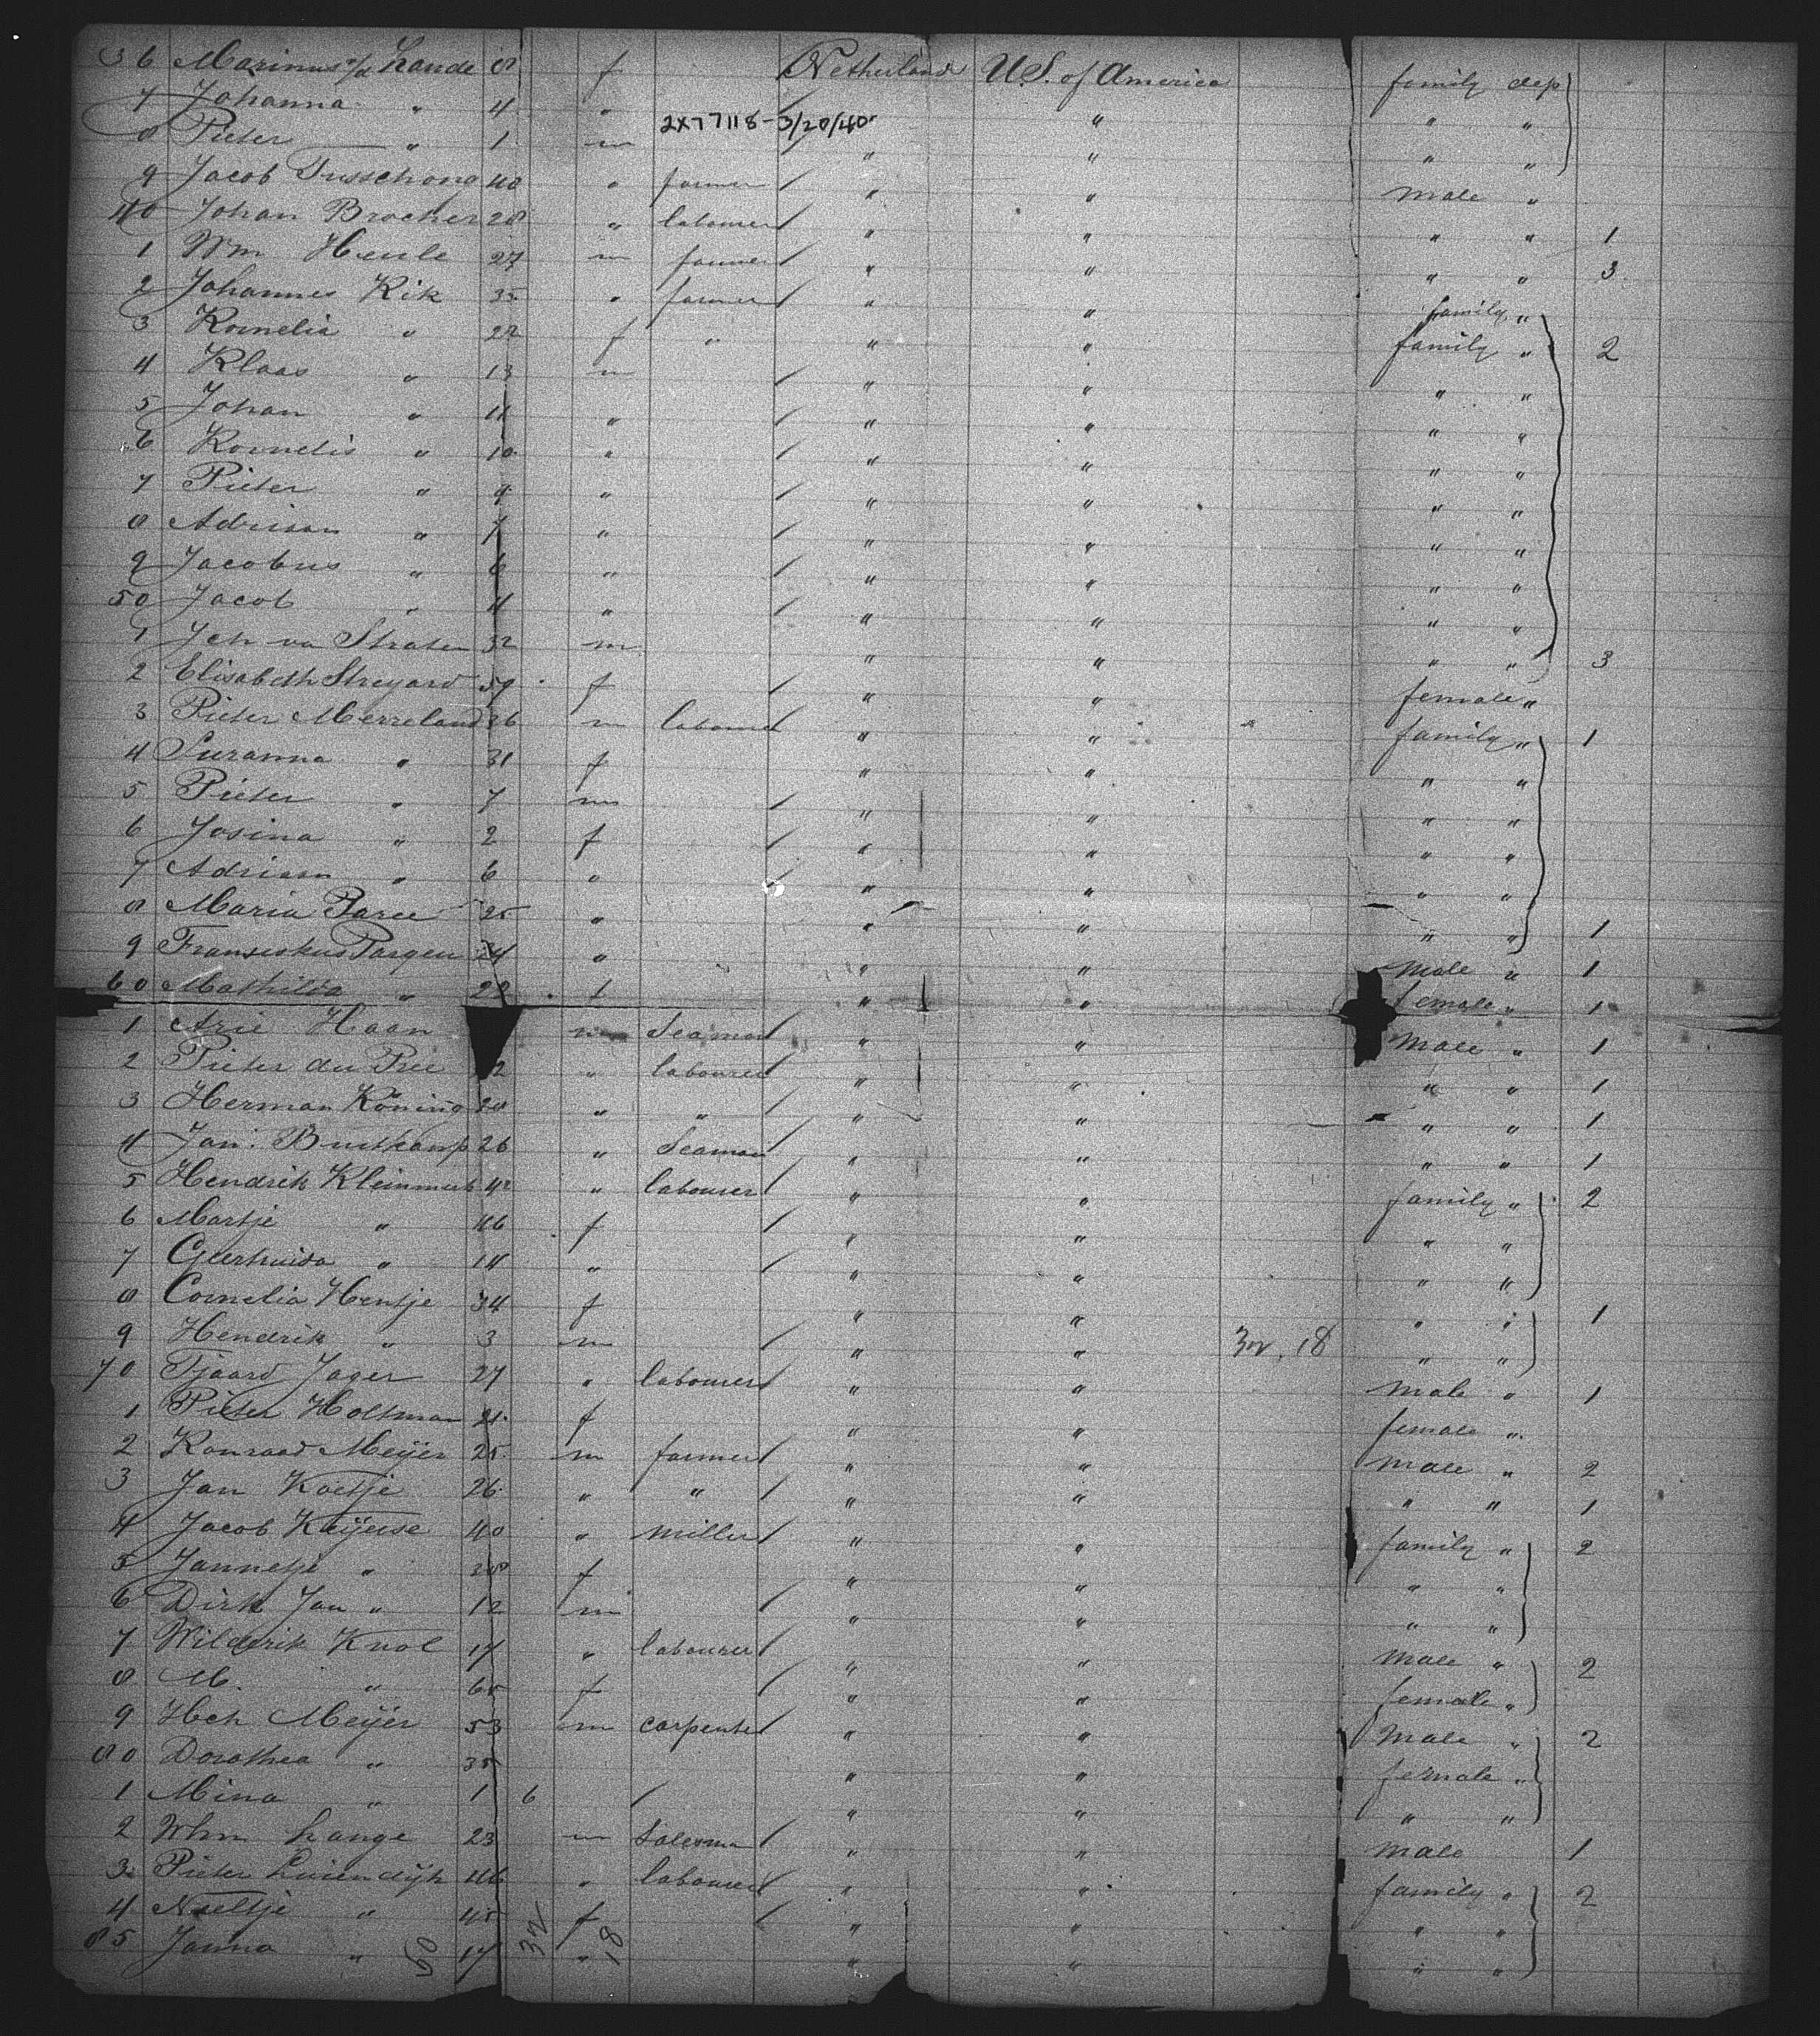 36 Marinus v/d Lande 8 f Netherland U.S. of America family dep
7 Johanna " 4 " " " " "
2X77118-3/20/40
8 Pieter " 1 m " " " "
9 Jacob 40 " farmer " " male "
40 Johan Brocher 28 " labourer " " " " 1
1 Wm Heule 27 m farmer " " " " 3
2 Johannes Kik 35 " farmer " " family "
3 Kornelia " 22 f " " " family " 2
4 Klaas " 13 m " " " "
5 Johan " 11 " " " " "
6 Kornelis " 10 " " " " "
7 Pieter " 9 " " " " "
8 Adriaan " 7 " " " " "
9 Jacobus " 6 " " " " "
50 Jacob " 4 " " " " "
1 Jch va Straten 32 m " " " " 3
2 Elisabeth Streyard 59 f " " female "
3 Pieter Merreland 36 m labourer " " family " 1
4 Suzanna " 31 f " " " "
5 Pieter " 7 m " " " "
6 Josina " 2 f " " " "
7 Adriaan " 6 " " " " "
8 Maria Paree 25 " " " " " 1
9 Fransiskus 24 " " " male " 1
60 Mathilda " 22 f " " female " 1
1 Arie Haan m Seaman " " Male " 1
2 Pieter du Pree 2 " labourer " " " " 1
3 Herman Köning 28 " " " " " " 1
4 Jan. Buskamp 26 " Seaman " " " " 1
5 Hendrik 42 " labourer " " family " 2
6 Martje " 46 f " " " "
7 Geertruida " 14 " " " " "
8 Cornelia Hentje 34 f " " " " 1
9 Hendrik " 3 m " " 32. 18 " "
70 Tjaard Jager 27 " labourer " " male " 1
1 Pieter Holtman 21 f " " female "
2 Konraad Meijer 25 m farmer " " male " 2
3 Jan Koetje 26 " " " " " " 1
4 Jacob Keijerse 40 " miller " " family " 2
5 Jannetje " 38 f " " " "
6 Dirk Jan " 12 m " " " "
7 Wilderik Knol 17 " labourer " " male " 2
8 M. " 65 f " " female "
9 Hch Meijer 53 m carpenter " " male " 2
80 Dorothea " 35 " " female "
1 Mina " 1 6 " " " "
2 Whm Lange 23 m Salesma " " male 1
3 Pieter Luiendijk 46 " labourer " " family " 2
4 Neeltje " 45 f " " " "
85 Janna " 17 " " " " "
50 32 18